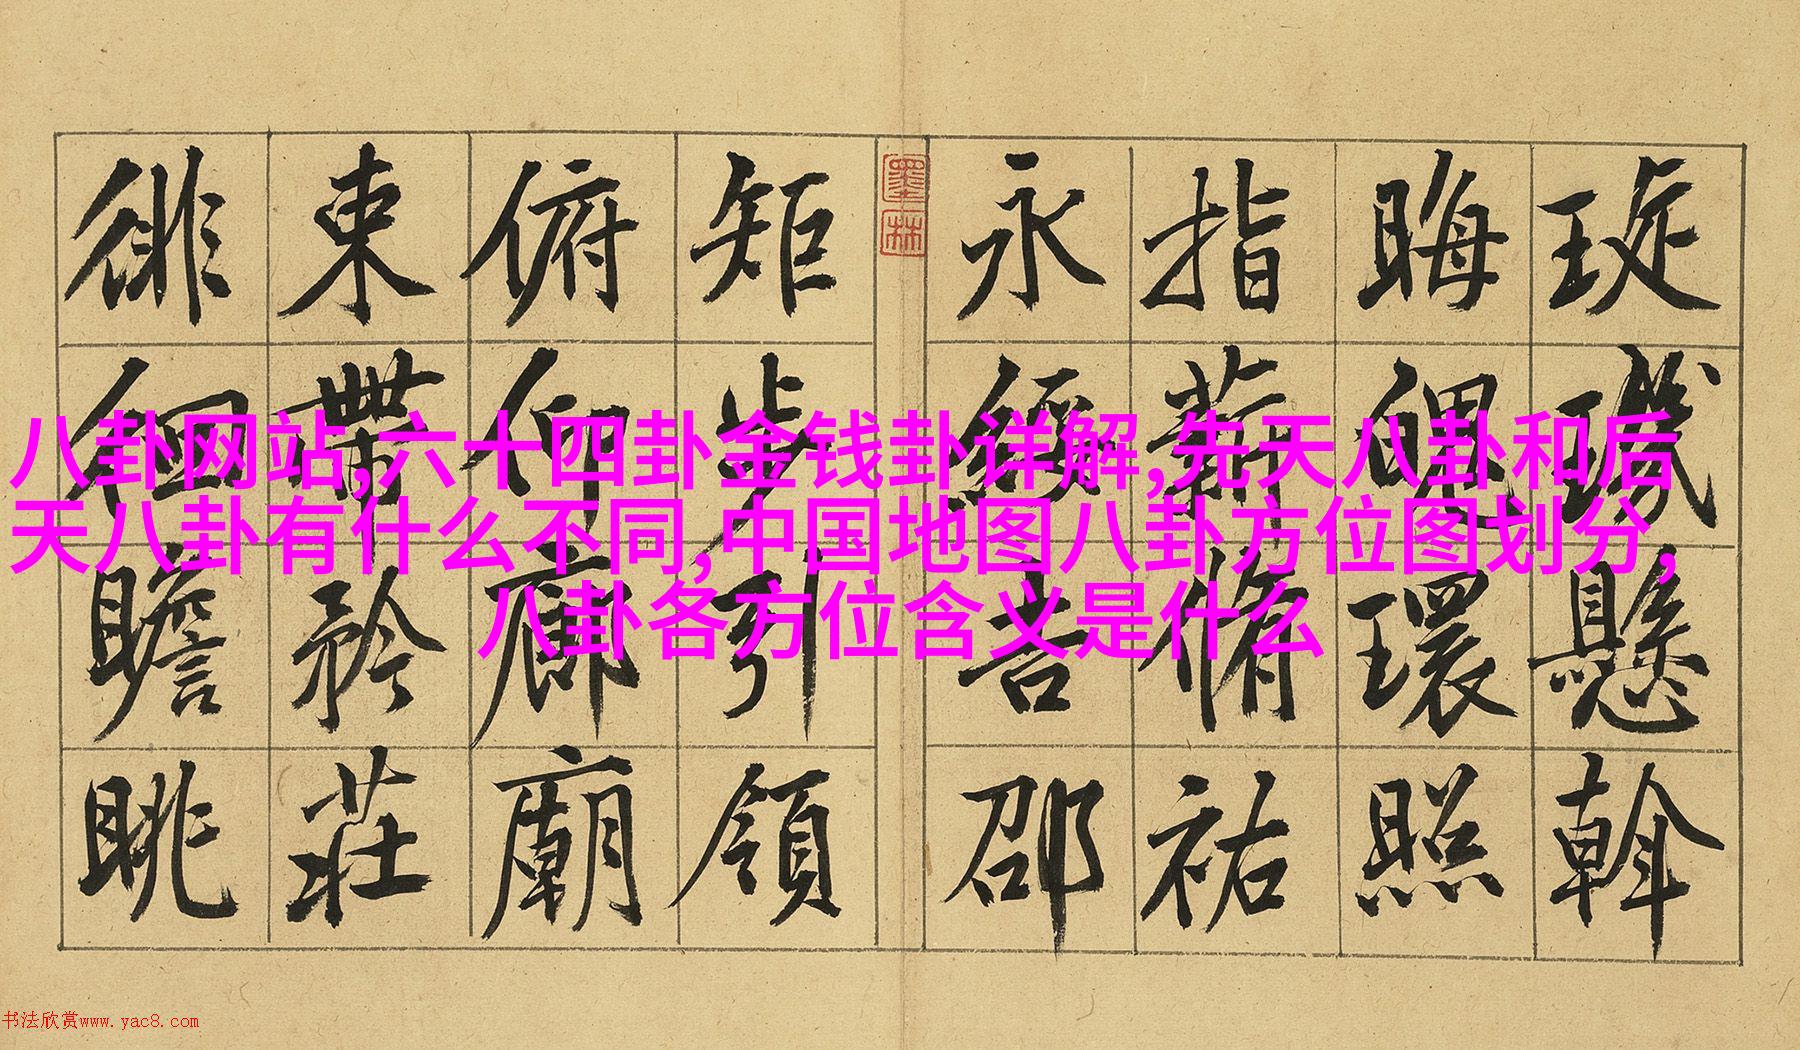 琁璣懸斡
晦魄環照
指薪脩祐
永綏吉邵
墨林
矩步引領
俯仰廊廟
束帶矜莊
徘徊瞻眺
八卦网站,六十四卦金钱卦详解,先天八卦和后
天八卦有什么不同,中国地图八卦方位图划分,
八卦各方位含义是什么
书法欣赏www.yac8.com